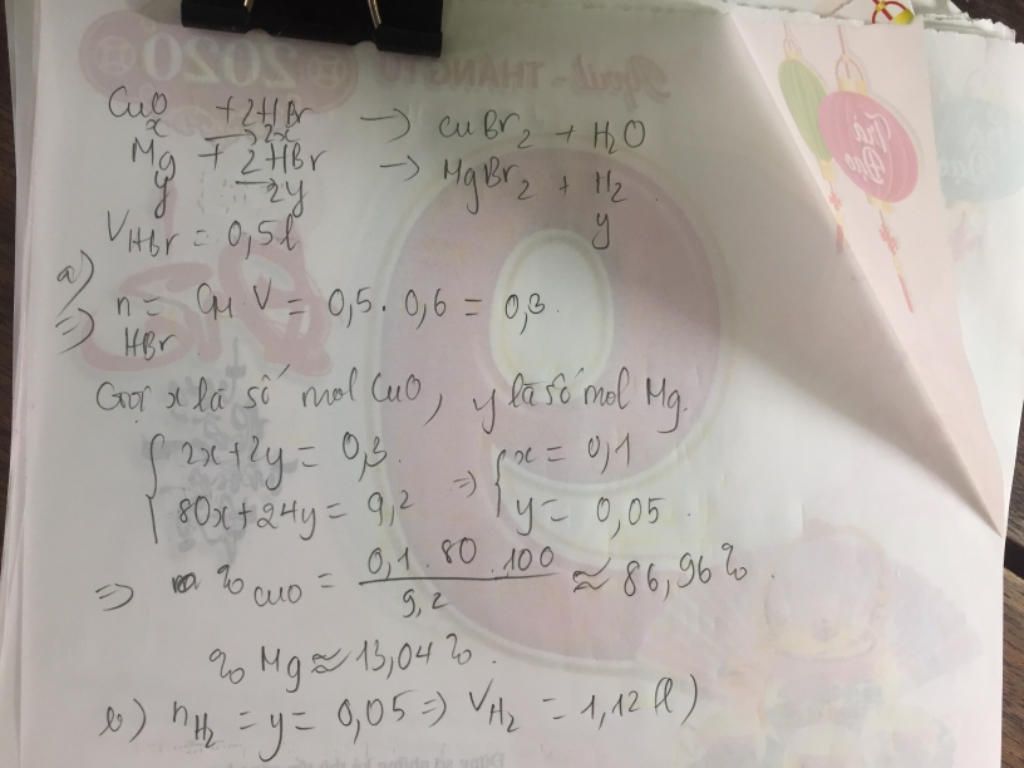 CuO + 2HBr → CuBr2 + H2O
x → 2x
Mg + 2HBr → MgBr2 + H2
y → 2y y
VHBr = 0,5l
a)
=> nHBr = CM.V = 0,5.0,6 = 0,3.
Gọi x là số mol CuO, y là số mol Mg.
{ 2x+2y = 0,3. => { x = 0,1
80x+24y = 9,2 y = 0,05.
=> % CuO = 0,1.80.100 / 9,2 ≈ 86,96%.
% Mg ≈ 13,04%.
b) nH2 = y = 0,05 => VH2 = 1,12 (l)
Trà Đào